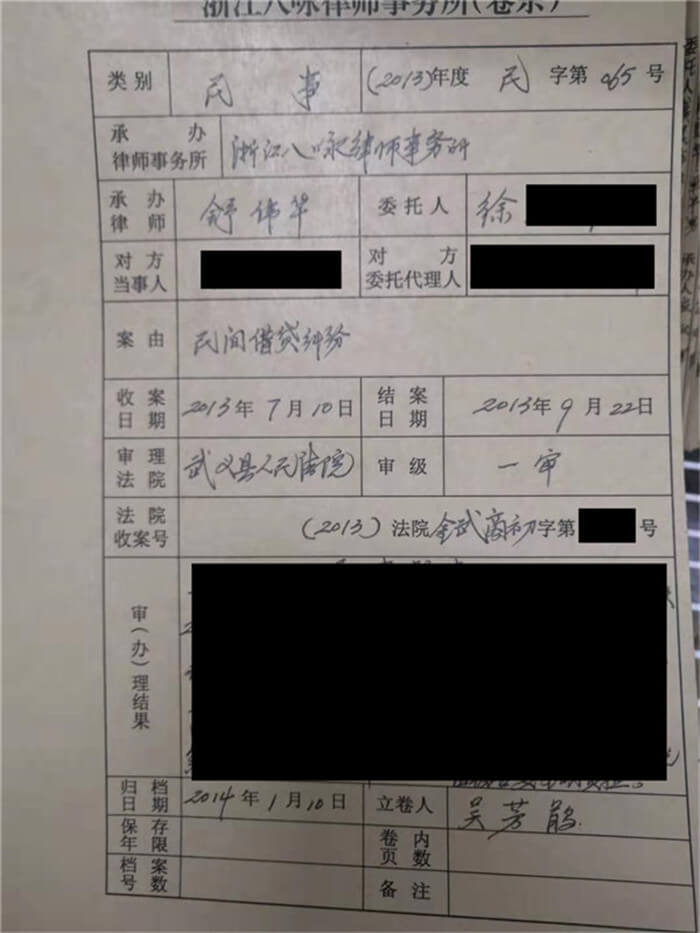 浙江八咏律师事务所(卷宗)
类别 民 事 (2013)年度 民 字第 065 号
承办律师事务所 浙江八咏律师事务所
承办律师 舒伟华 委托人 徐
对方当事人 对方委托代理人
案由 民间借贷纠纷
收案日期 2013年7月10日 结案日期 2013年9月22日
审理法院 武义县人民法院 审级 一审
法院收案号 (2013)法院金武商初字第 号
审(办)理结果
归档日期 2014年1月10日 立卷人 吴芳
保存年限 卷内页数
档案号数 备注